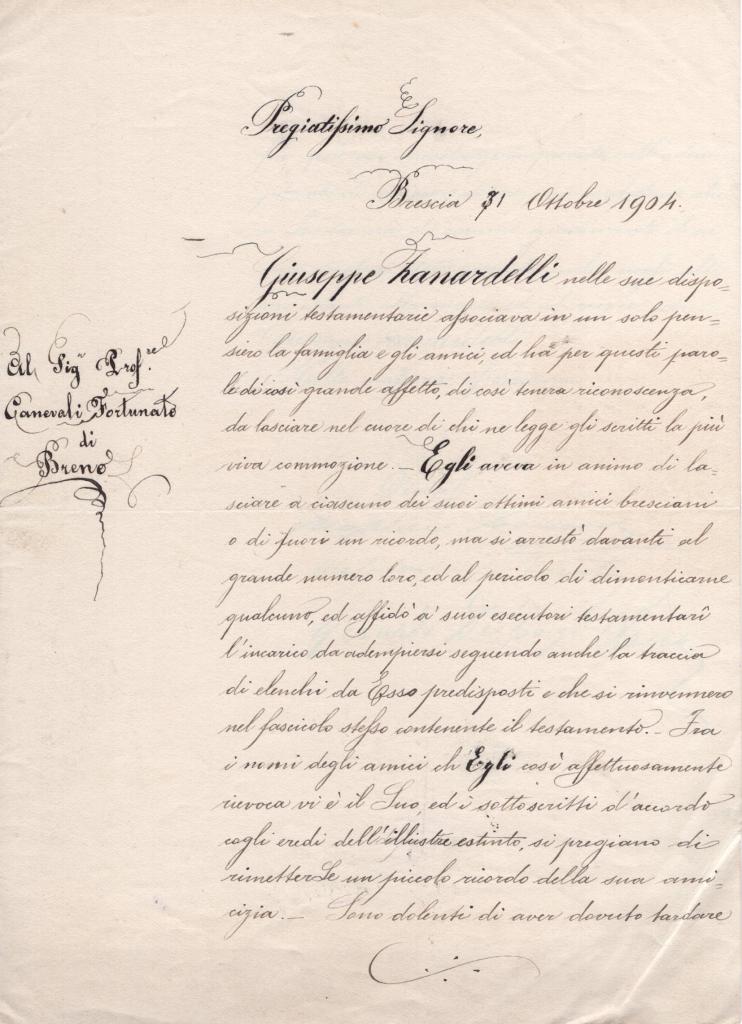 Pregiatissimo Signore,
Brescia 31 Ottobre 1904.
Al Sig.r Prof.re
Canevali Fortunato
di
Breno
Giuseppe Zanardelli nelle sue dispo=
sizioni testamentarie associava in un solo pen=
siero la famiglia e gli amici, ed ha per questi paro=
le di così grande affetto, di così tenera riconoscenza,
da lasciare nel cuore di chi ne legge gli scritti la più
viva commozione. — Egli aveva in animo di la=
sciare a ciascuno dei suoi ottimi amici bresciani
o di fuori un ricordo, ma si arrestò davanti al
grande numero loro, ed al pericolo di dimenticarne
qualcuno, ed affidò a' suoi esecutori testamentari
l'incarico da adempiersi seguendo anche la traccia
di elenchi da Esso predisposti e che si rinvennero
nel fascicolo stesso contenente il testamento. — Fra
i nomi degli amici ch Egli così affettuosamente
rievoca vi è il Suo, ed i sottoscritti d'accordo
cogli eredi dell'illustre estinto, si pregiano di
rimetterLe un piccolo ricordo della sua ami=
cizia. — Sono dolenti di aver dovuto tardare